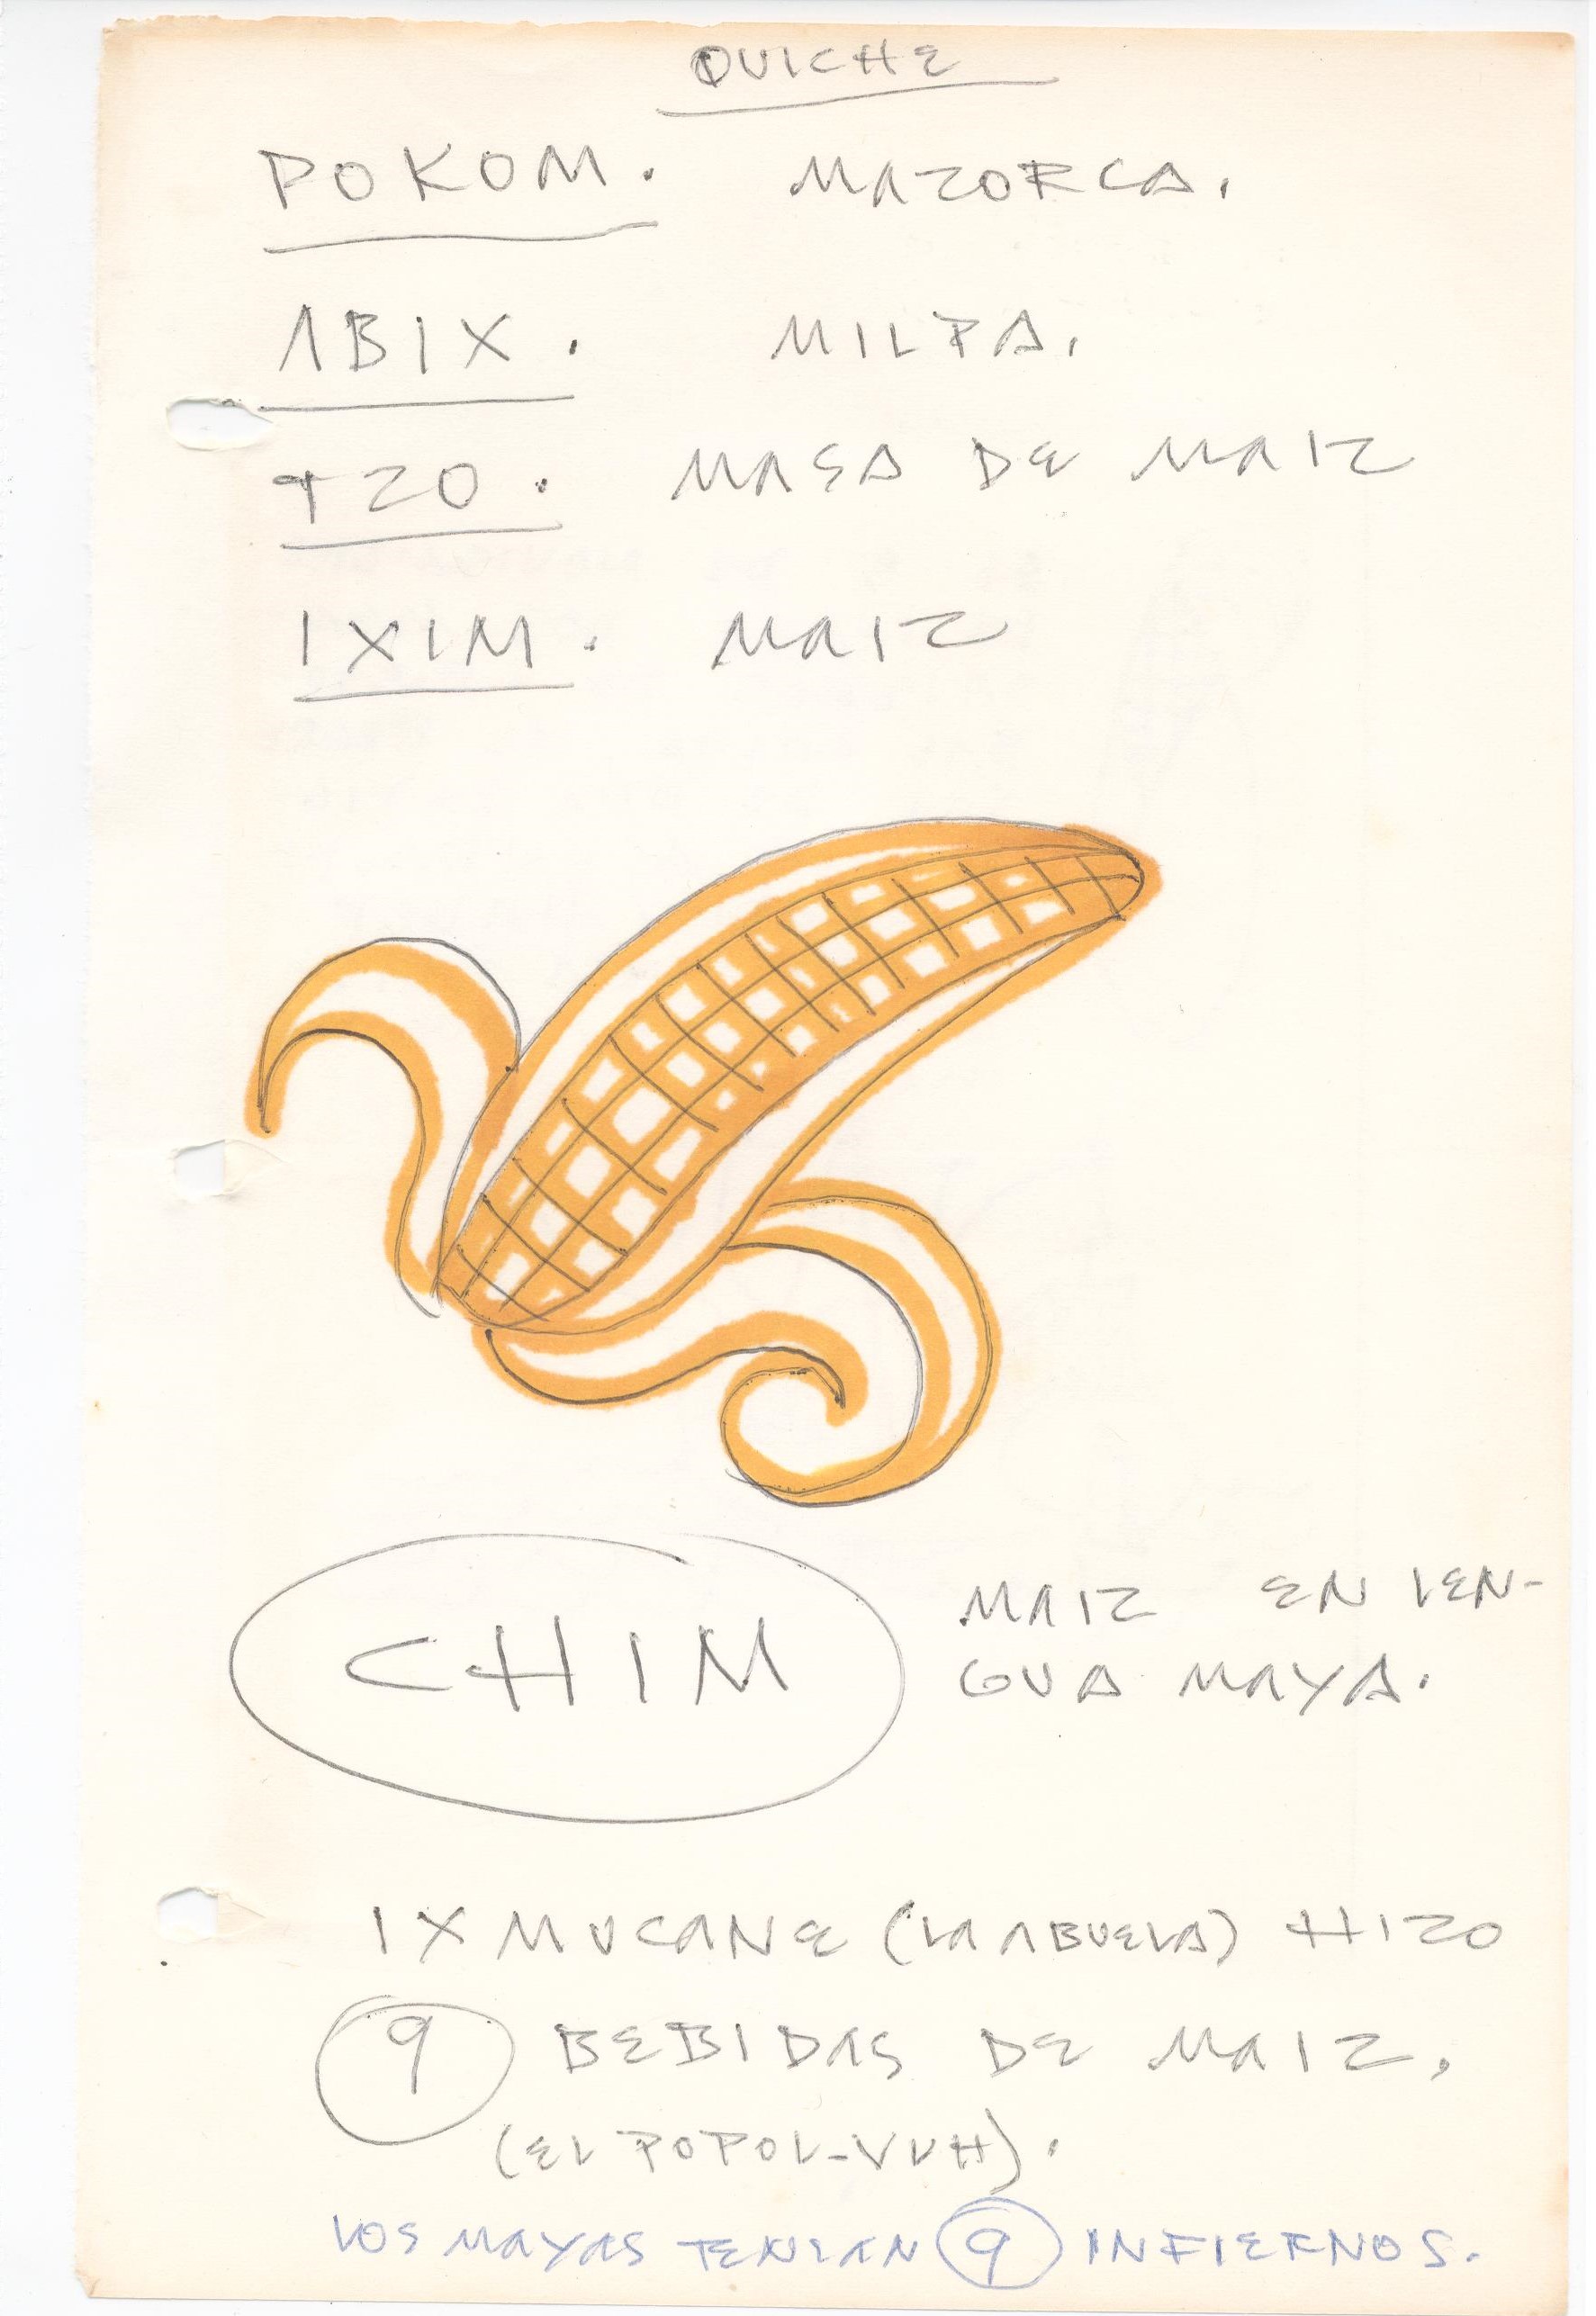 QUICHE
POKOM. MAZORCA.
ABIX. MILPA.
TZO. MASA DE MAIZ
IXIM. MAIZ
CHIM
MAIZ EN LEN-
GUA MAYA.
IXMUCANE (LA ABUELA) HIZO
9 BEBIDAS DE MAIZ.
(EL POPOL-VUH).
LOS MAYAS TENIAN 9 INFIERNOS.